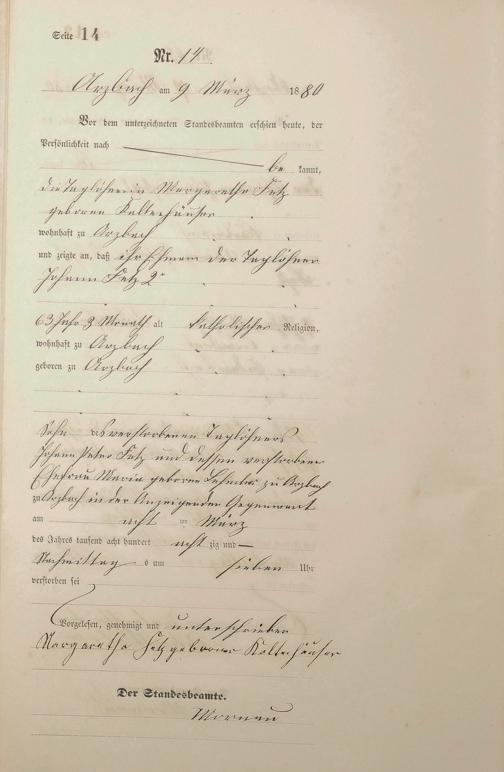 Seite 14
Nr. 14.
Arzbach am 9 März 1880
Vor dem unterzeichneten Standesbeamten erschien heute, der
Persönlichkeit nach
be kannt,
die Taglöhnerin Margarethe Fetz
geborene Kaltehäuser
wohnhaft zu Arzbach
und zeigte an, daß ihr Ehmann der Taglöhner
Johann Fetz 2r
63 Jahr 3 Monath alt katholischer Religion,
wohnhaft zu Arzbach
geboren zu Arzbach
Sohn des verstorbenen Taglöhners
Johann Peter Fetz und dessen verstorbener
Ehefrau Maria geborene zu Arzbach
zu Arzbach in der Anzeigenden Gegenwart
am acht ten März
des Jahres tausend acht hundert acht zig und —
Nachmittag s um sieben Uhr
verstorben sei
Vorgelesen, genehmigt und unterschrieben
Margaretha Fetz geborner Kaltehäuser
Der Standesbeamte.